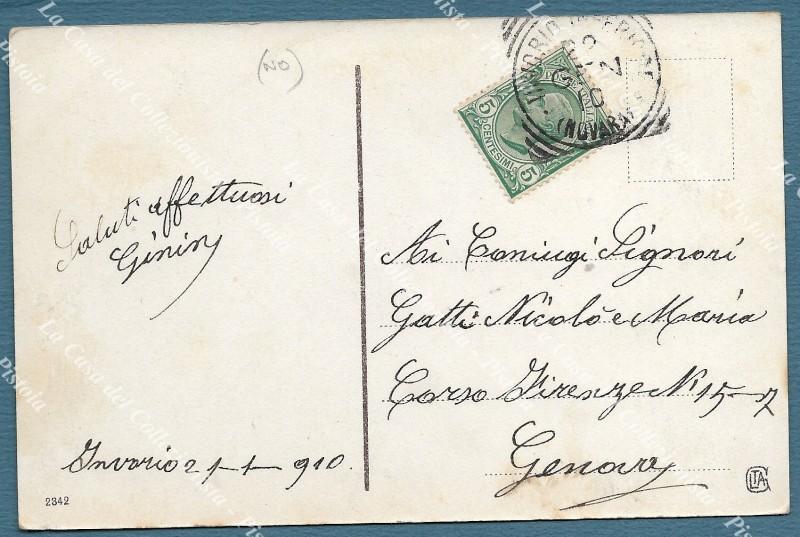 (NO)
INVORIO INFERIORE
(NOVARA)
POSTE ITALIANE
5
CENTESIMI
5
Saluti affettuosi
Ginin
Invorio 21-1-910.
2342
Ai Coniugi Signori
Gatti Nicolò e Maria
Corso Firenze N° 15-7
Genova
LTA
La Casa del Collezionista - Pistoia